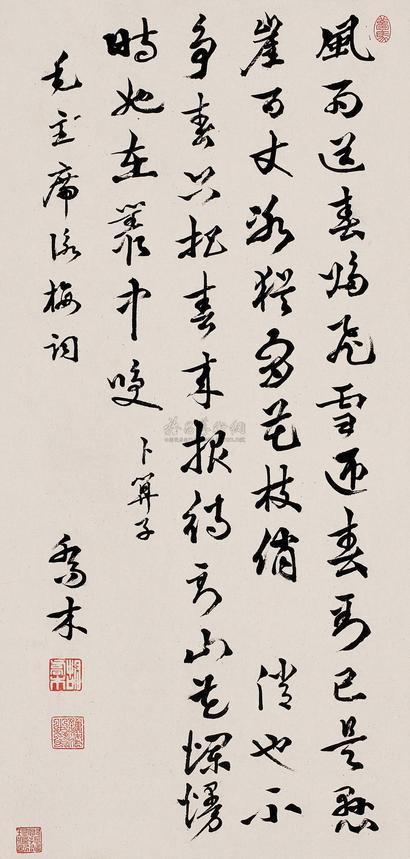 風雨送春歸飛雪迎春到已是懸
崖百丈冰猶有花枝俏 俏也不
爭春只把春来報待到山花爛熳
時她在叢中咲
卜算子
毛主席詠梅詞
喬木